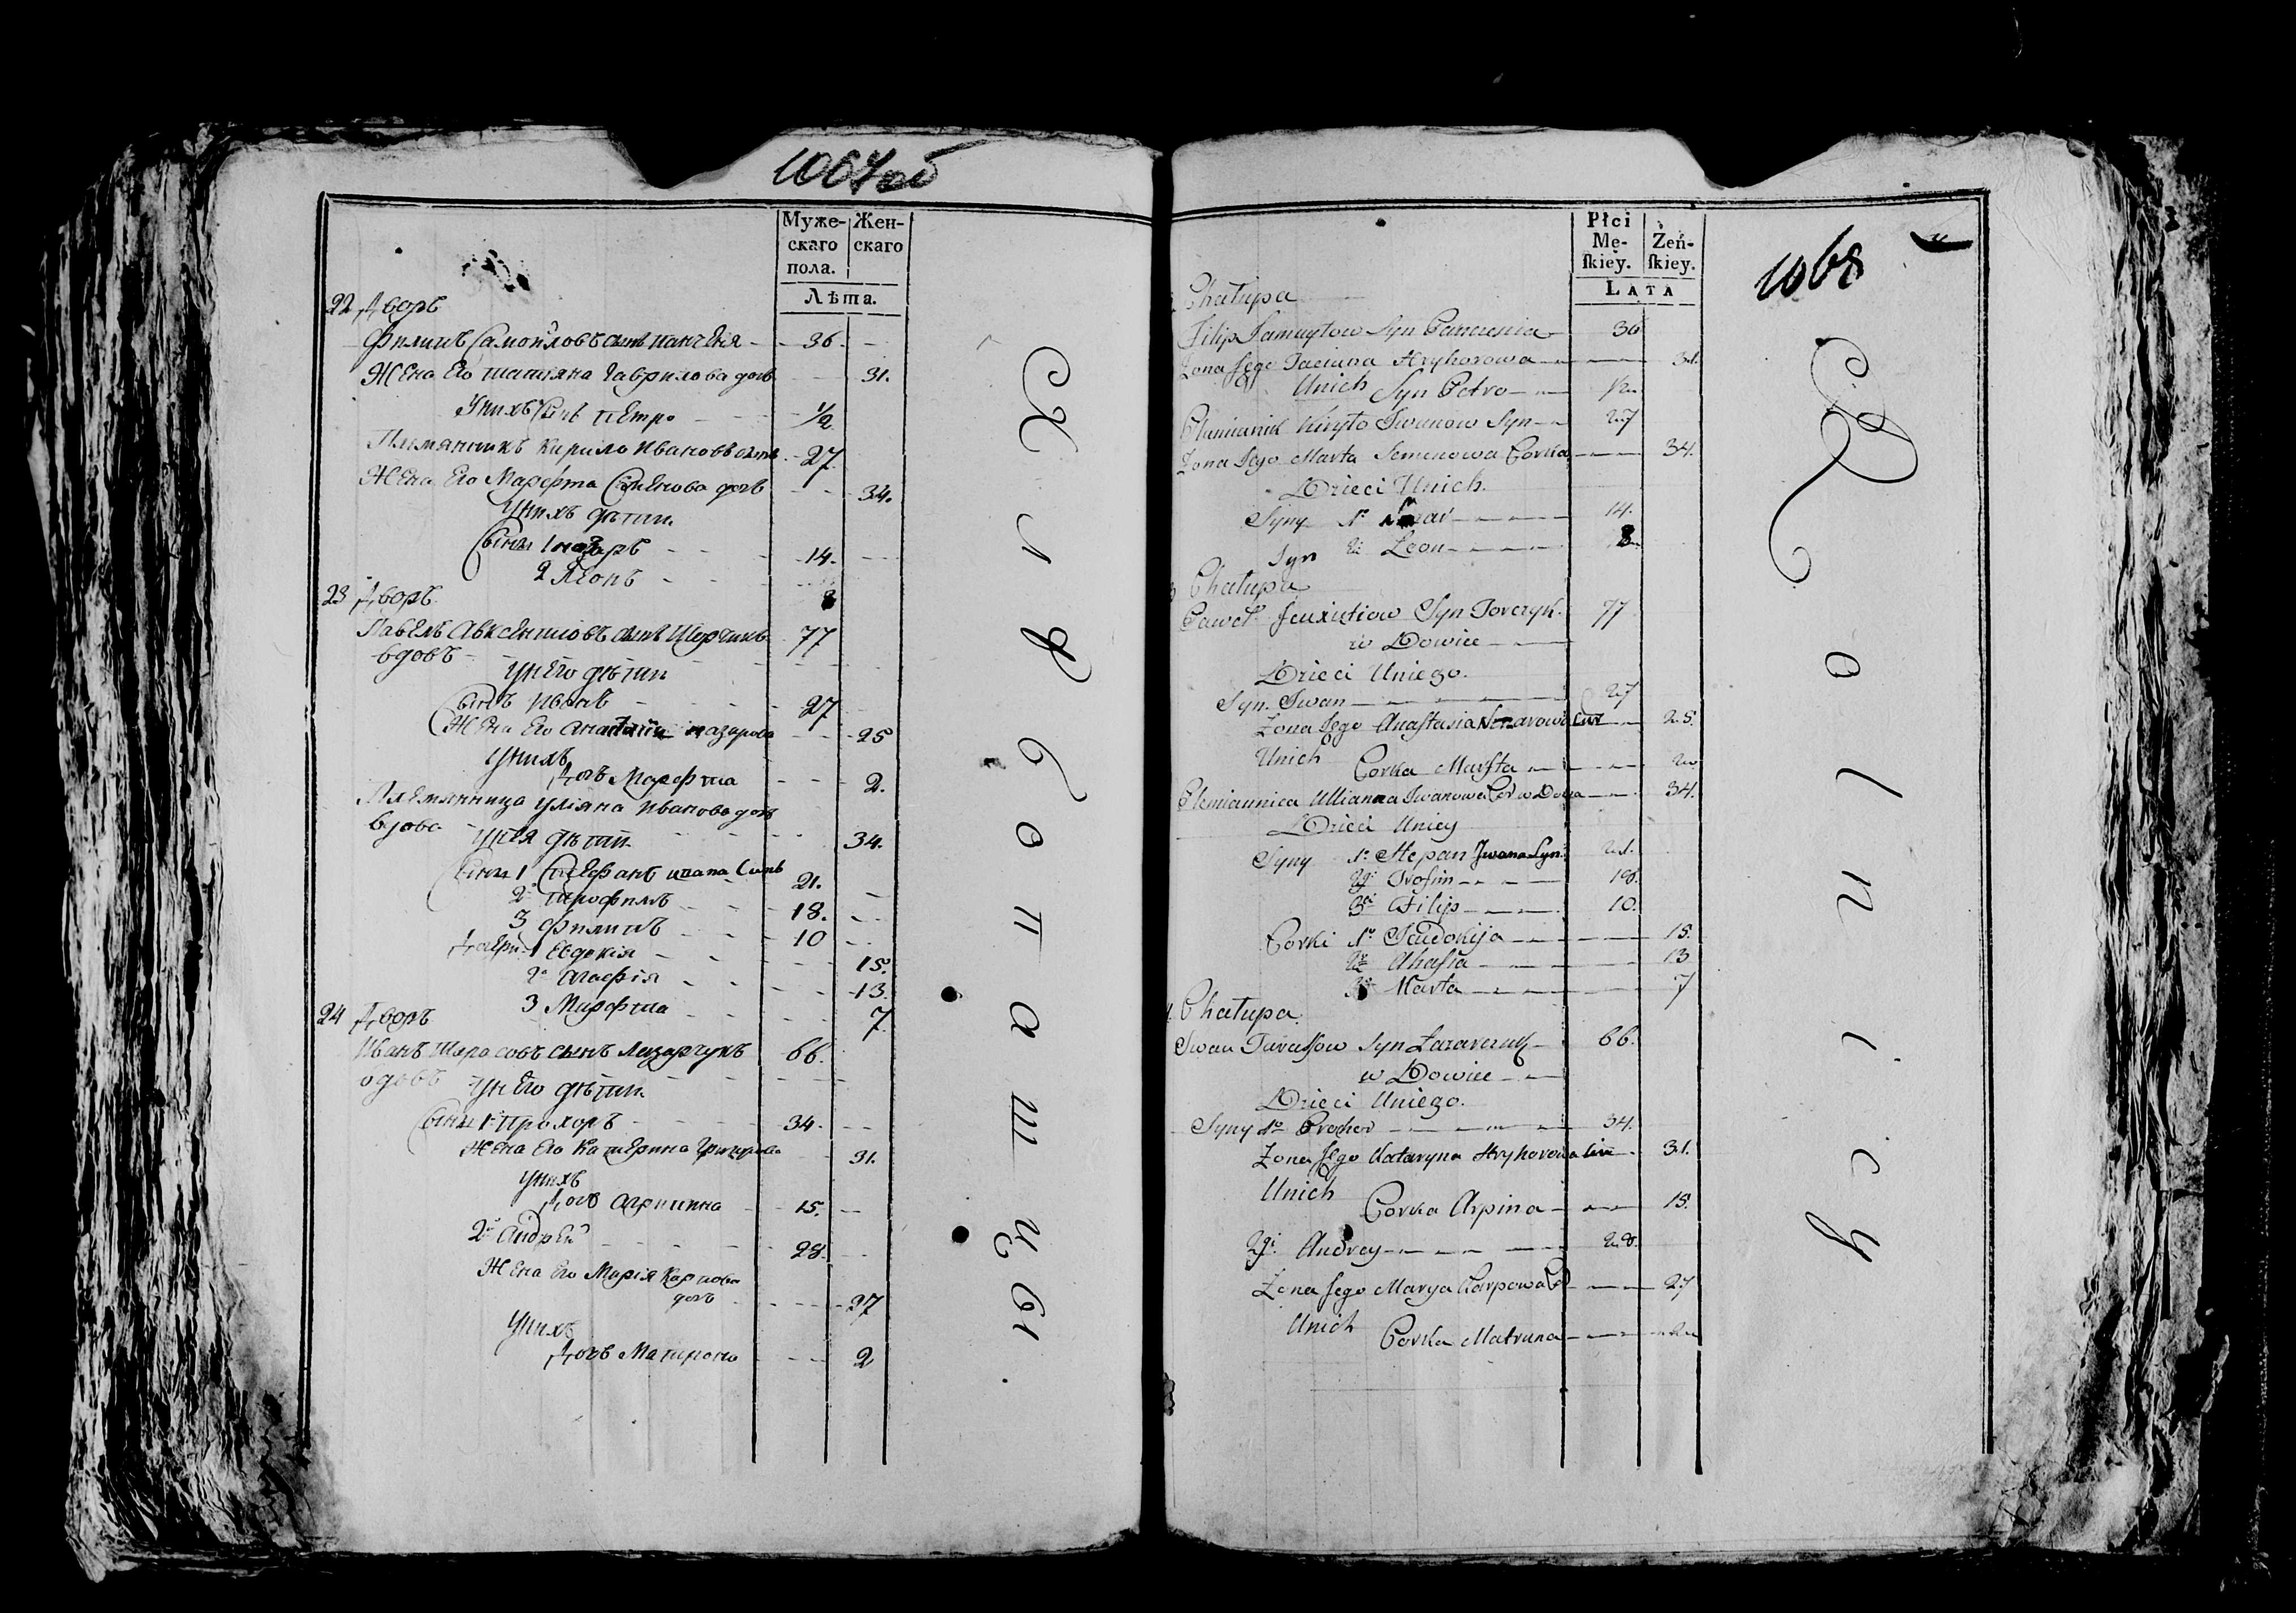 1067 об
Муже-
скаго
пола.
Жен-
скаго
Лѣта.
22 Дворъ
Филипъ Самойловъ сынъ - 36.
Жена Его татьяна Гаврилова дочь 31.
Унихъ Сынъ пЕтро ½
Племянникъ Кирило Ивановъ сынъ 27
Жена Его Марфта СемЕнова дочь 34.
Унихъ дѣти
Сыны 1 назаръ 14.
2 ЛЕонъ 8
23 Дворъ
ПавЕлъ АвксЕнтіовъ сынъ 77
вдовъ
УнЕго дѣти
Сынъ Иванъ 27
ЖЕна Его назарова 25
Унихъ
Дочь Марфта 2.
Племянница уліяна Иванова дочь
вдова 34.
УнЕя дѣти
Сыны 1 СтЕфанъ Сынъ 21.
2й трофимъ 18.
3 филипъ 10
Дочери 1 Евдокія 15.
2я Агафія 13.
3 Марфта 7
24 Дворъ
Иванъ тарасовъ сынъ Лазарчукъ 66.
УнЕго дѣти
Сыны 1й Прохоръ 34.
Жена Его КатЕрина Григорова 31.
Унихъ
Дочь Агрипина 15.
2й АндрЕй 28.
ЖЕна Его Марія Карпова
дочь 27
Унихъ
Дочь Матрона 2
Х л Ѣ б о п а ш ц ы
Płci
Mę-
ſkiey.
Żeń-
ſkiey.
LATA
1068
Chałupa
Filip Samuyłow Syn 36
Zona Jego Taciana Hryhorowa 31.
Unich Syn Petro ½
Plemiannik Kiryło Iwanow Syn 27
Zona Jego Marta Semenowa Corka 34.
Dzieci Unich.
Syny 1o 14.
Syn 2i Leon 8
Chałupa
Paweł Syn 77
w Dowiec
Dzieci Uniego.
Syn Iwan 27
Zona Jego Anastasia 25.
Unich Corka Marfta 2
Plemiannica Ullianna Iwanowa 34.
Dzieci Uniey
Syny 1o Stepan Iwana Syn 21.
2gi Trofim 18.
3i Filip 10.
Corki 1o Jeudokija 15.
2a Ahafia 13
3a Marta 7
Chałupa
Iwan Tarassow Syn Łazarczuk 66.
w Dowiec
Dzieci Uniego.
Syny 1o Prochor 34.
Zona Jego Kataryna Hryhorowa 31.
Unich
Corka Arpina 15.
2gi Andrey 28.
Zona Jego Marya Karpowa 27
Unich
Corka Matruna 2
R o l n i c y